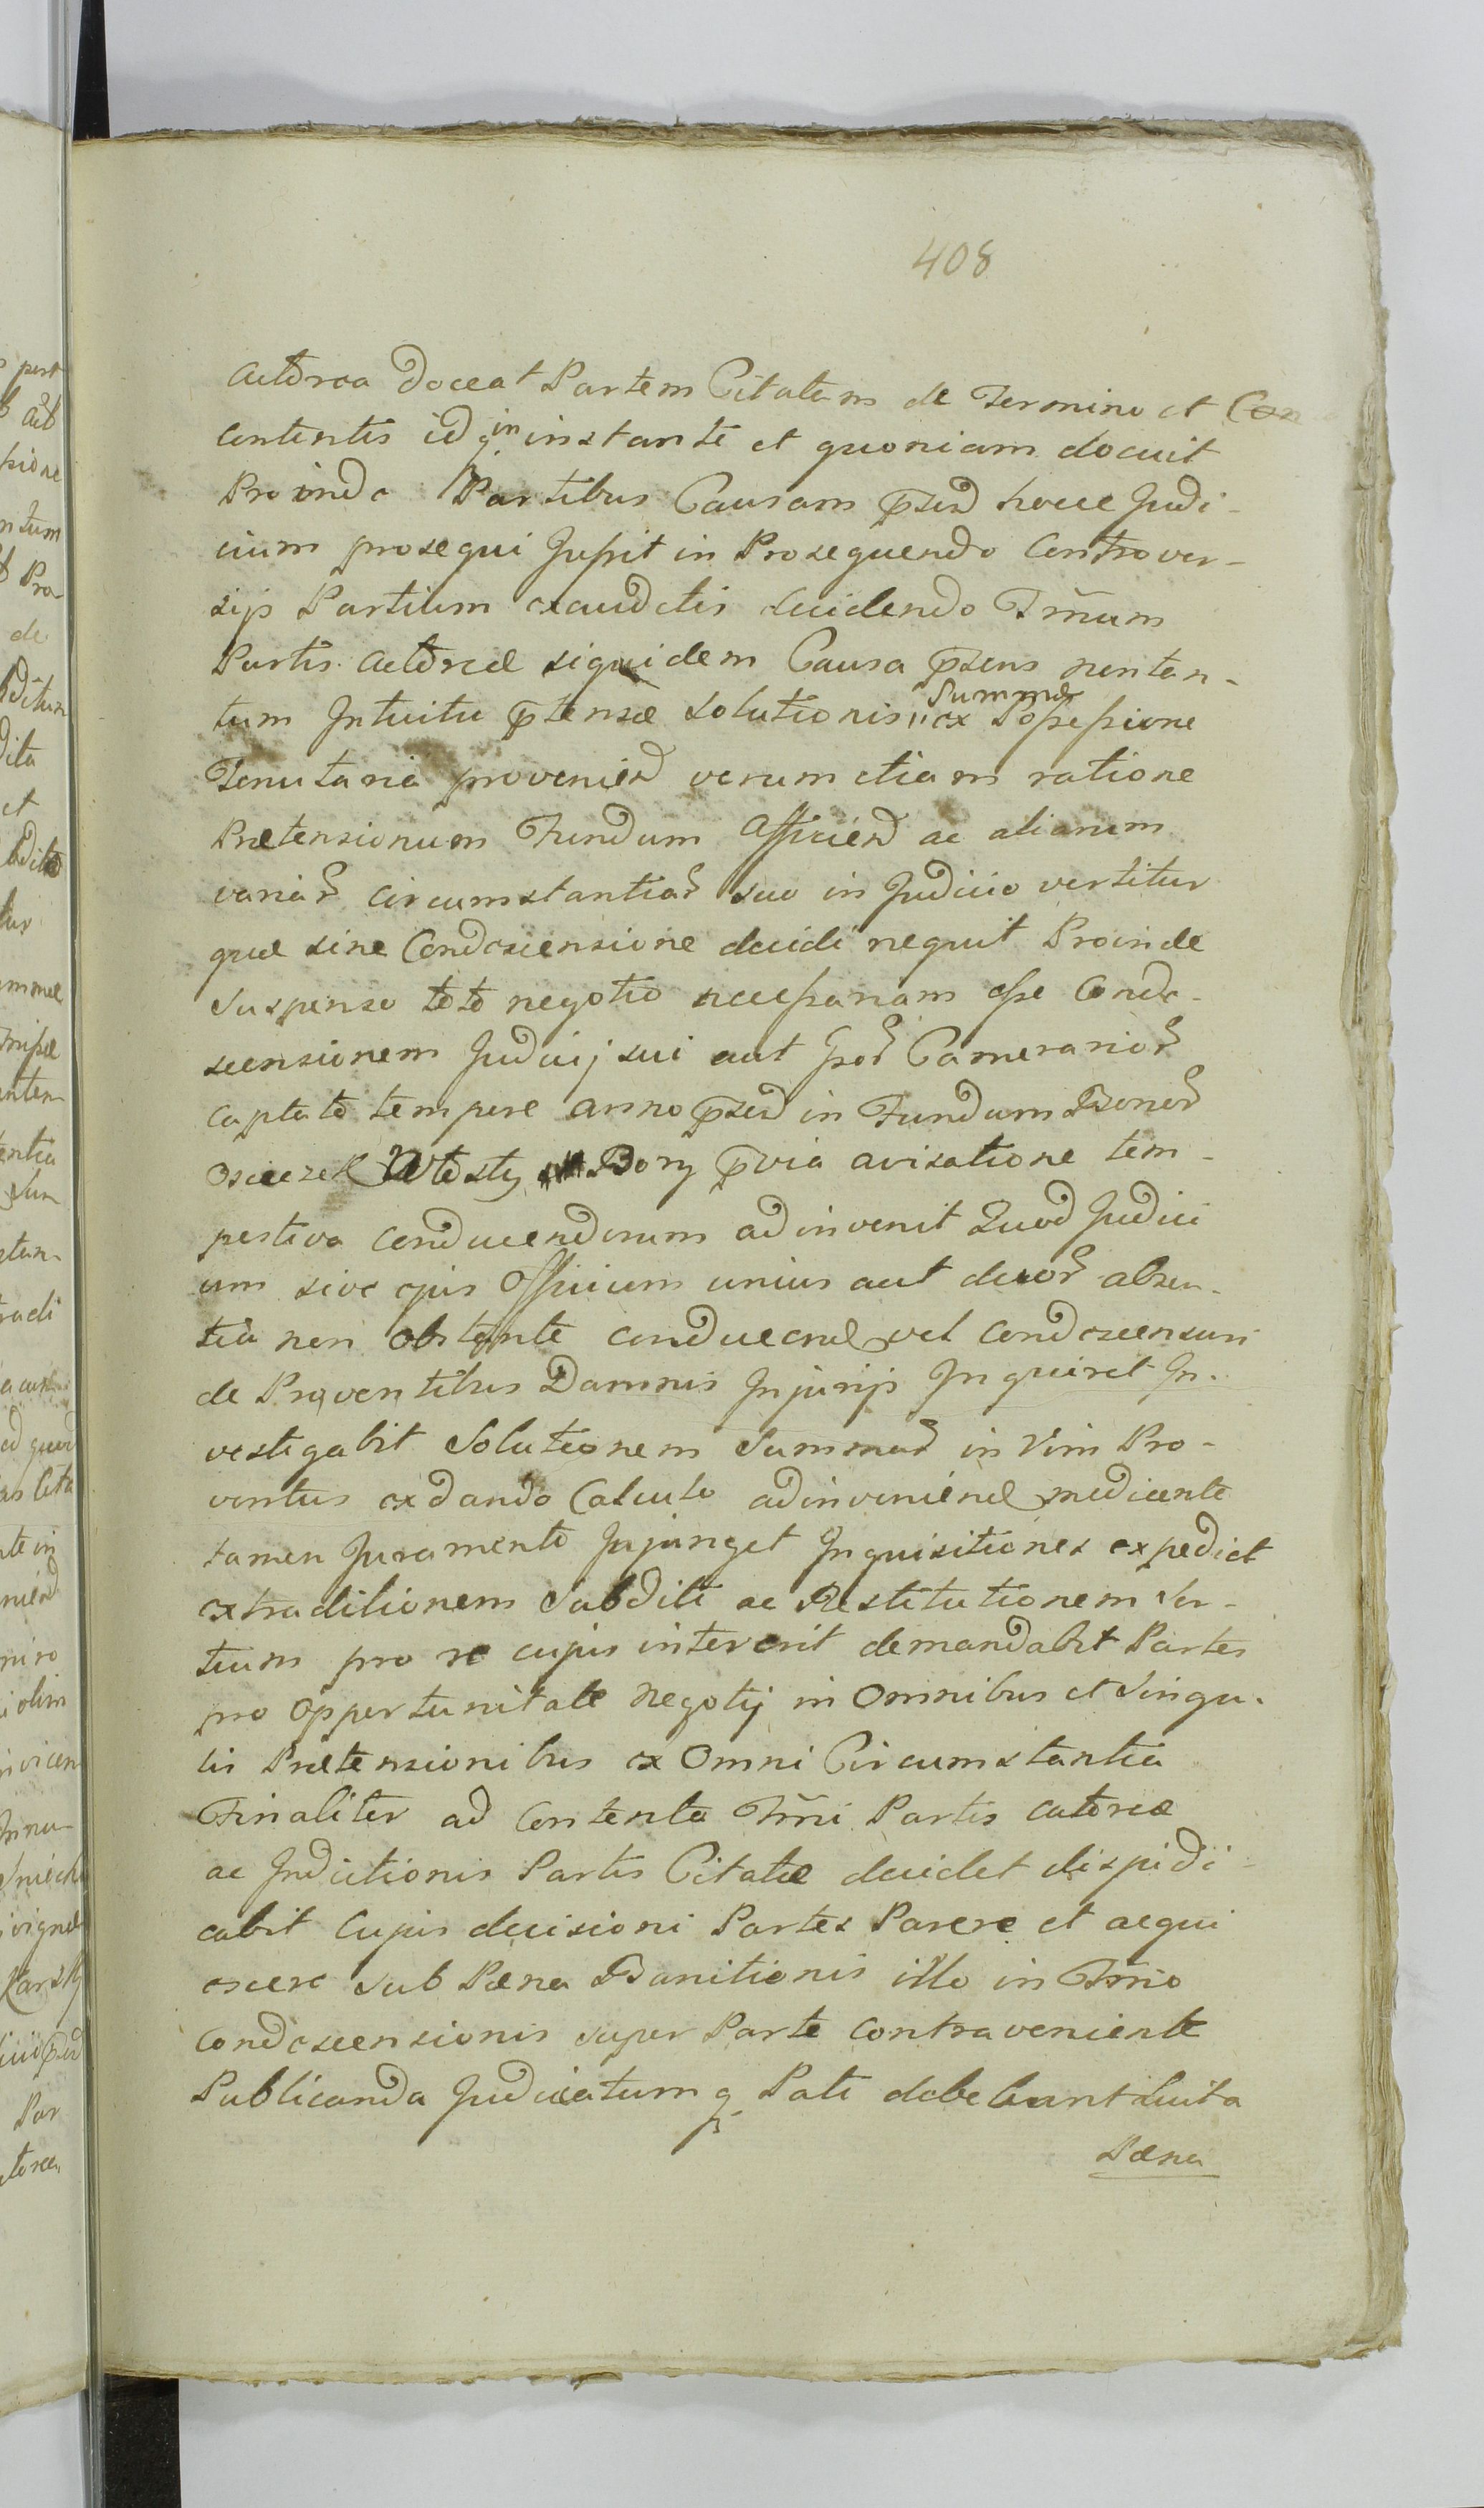 408
Actorea doceat Partem Citatam de Termino et Con
contentis idq in instante et quoniam docuit
Proinde Partibus Causam p̃sen hocce Judi-
cium prosequi Jussit in Prosequendo Controver-
sijs Partium exauditis decidendo Tm̃um
Partis Actoreæ siquidem Causa p̃sens nontan-
tum Intuitu p̃tensæ Solutionis Summæ ex Possessione
Tenutaria provenien verum etiam ratione
Prætensionum Fundum Afficien ac aliarum
variar circumstantiar suo in Judicio vertitur
quæ sine Condescensione decidi nequit Proinde
Suspenso toto negotio necessariam esse Conde-
scensionem Judicij sui aut Gsor Camerarior
captato tempore anno p̃sen in Fundum Bonor
Osieczek Wtosty Bory p̃via avisatione tem-
pestiva conducendorum adinvenit Quod Judici
um sive ejus Officium unius aut duor absen-
tia non Obstante conducend vel condescensuri
de Proventibus Damnis Injurijs Inquiret In-
vestigabit Solutionem Summar in Vim Pro-
ventus exdando Calculo adinveniend mediante
tamen Juramento Injunget Inquisitiones expediet
extraditionem Subditi ac Restitutionem Ser-
tium pro re cujus intererit demandabit Partes
pro Opportunitate negotij in Omnibus et Singu-
lis Prætensionibus ex Omni Circumstantia
Finaliter ad Contenta Tm̃i Partis actoreæ
ac Inductionis Partis Citatæ decidet disjudi-
cabit Cujus decisioni Partes Parere et acqui
escere sub Pæna Banitionis illo in Tm̃o
Condescensionis super Parte Contraveniente
Publicanda Judicatumq Pati debebunt Luita
Pæna